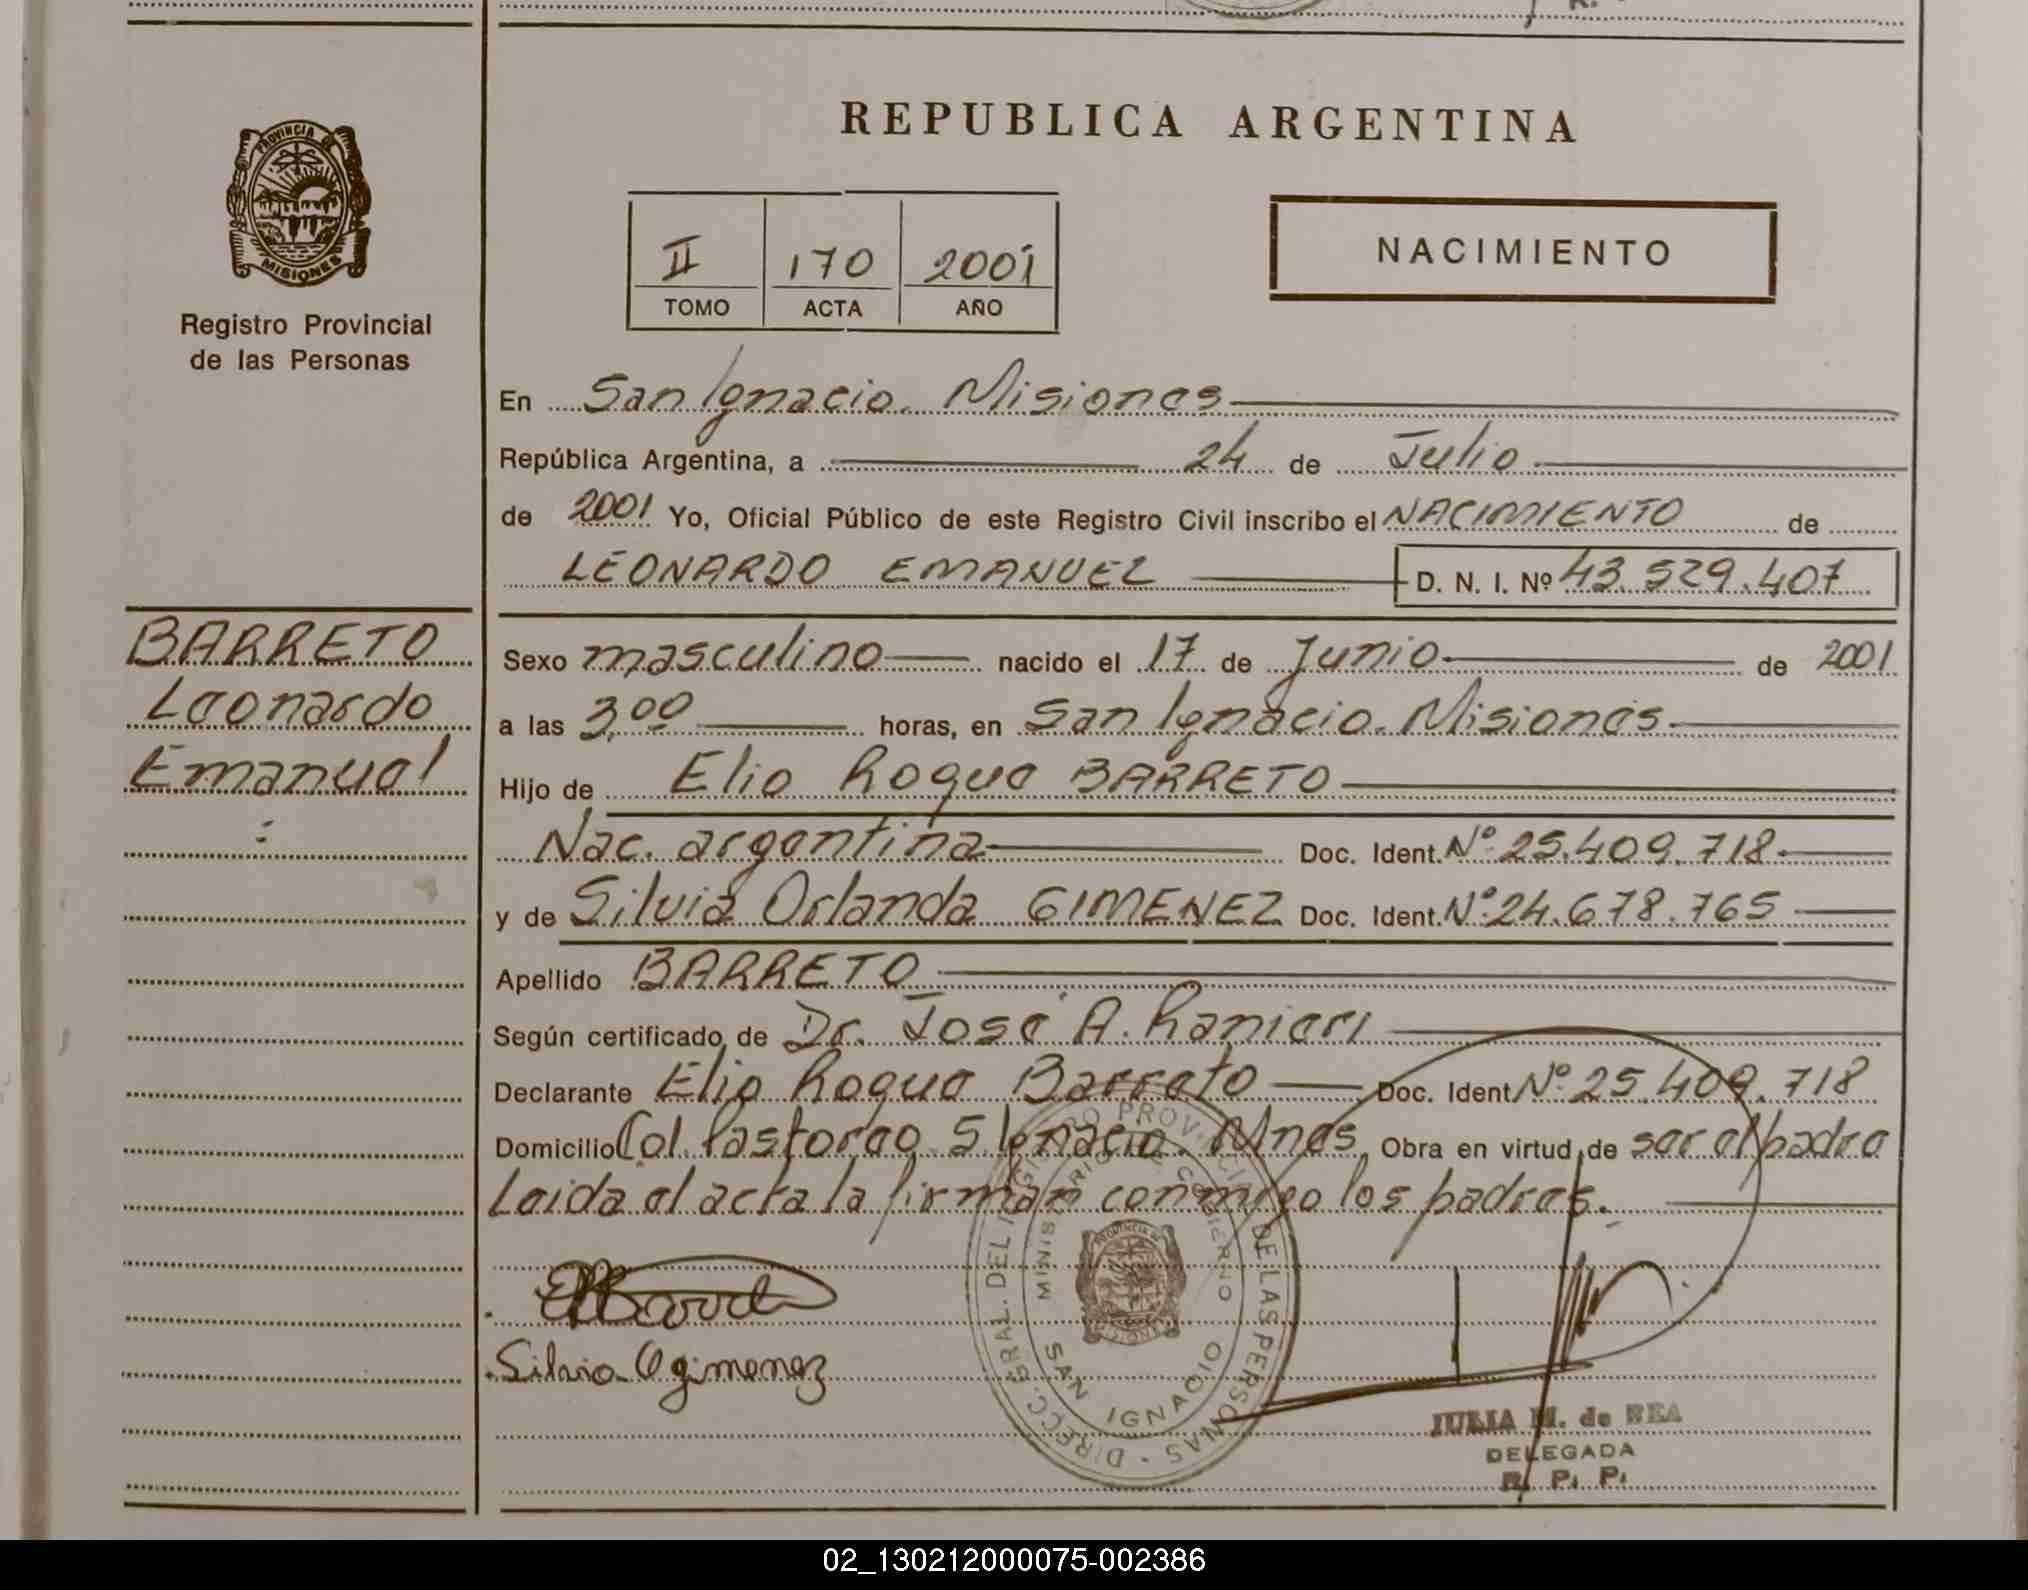 REPUBLICA ARGENTINA
PROVINCIA DE
MISIONES
Registro Provincial
de las Personas
II 170 2001
TOMO ACTA AÑO
NACIMIENTO
En San Ignacio. Misiones
República Argentina, a 24 de Julio
de 2001 Yo, Oficial Público de este Registro Civil inscribo el NACIMIENTO de
LEONARDO EMANUEL D. N. I. Nº 43.529.407
BARRETO
Leonardo
Emanuel
Sexo masculino nacido el 17 de Junio de 2001
a las 3,00 horas, en San Ignacio. Misiones
Hijo de Elio Roque BARRETO
Nac. argentina Doc. Ident. Nº 25.409.718
y de Silvia Orlanda GIMENEZ Doc. Ident. Nº 24.678.765
Apellido BARRETO
Según certificado de Dr. José A. Ranieri
Declarante Elio Roque Barreto Doc. Ident Nº 25.409.718
Domicilio Col. Pastoreo. S. Ignacio. Mnes Obra en virtud de ser el padre
Leida el acta la firman conmigo los padres.
Silvia O gimenez
DIRECC. GRAL. DEL REGISTRO PROVINCIAL DE LAS PERSONAS
MINISTERIO DE GOBIERNO
SAN IGNACIO
JULIA M. de REA
DELEGADA
R. P. P.
02_130212000075-002386